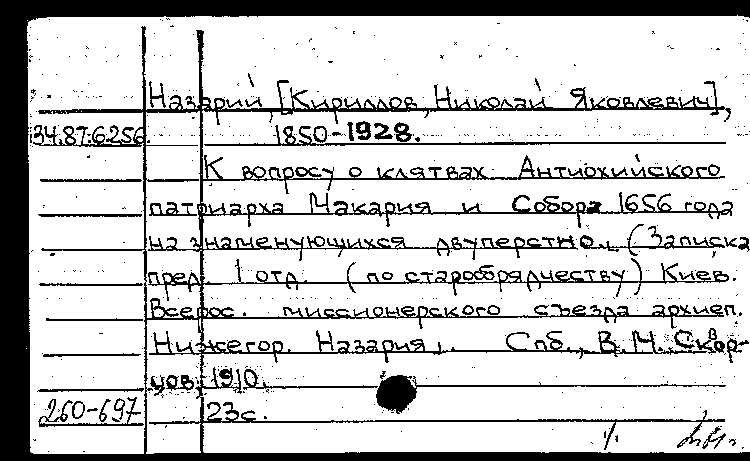 Назарий, [Кириллов, Николай Яковлевич],
34.87:6256. 1850-1928.
К вопросу о клятвах Антиохийского
патриарха Макария и Собора 1656 года
на знаменующихся двуперстно. (Записка
пред. 1 отд. (по старообрядчеству) Киев.
Всерос. миссионерского съезда архиеп.
Нижегор. Назария). Спб., В.М. Сквор-
цов, 1910.
260-697 23с.